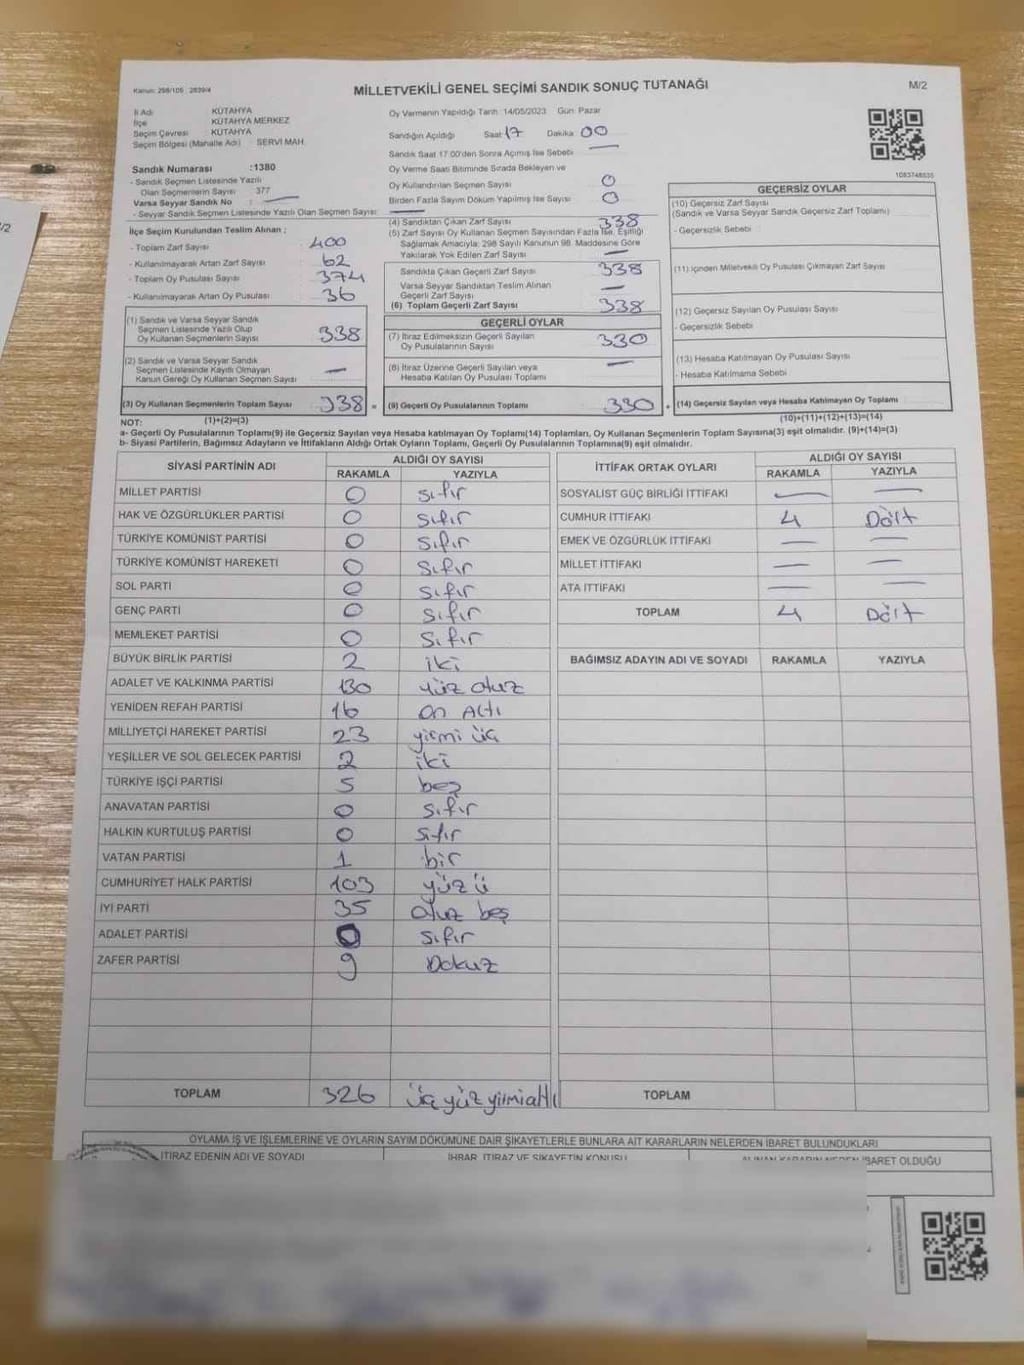 Kanun: 298/105 2839/4
MİLLETVEKİLİ GENEL SEÇİMİ SANDIK SONUÇ TUTANAĞI
M/2
İl Adı : KÜTAHYA
İlçe : KÜTAHYA MERKEZ
Seçim Çevresi : KÜTAHYA
Seçim Bölgesi (Mahalle Adı) : SERVİ MAH.
Sandık Numarası :1380
- Sandık Seçmen Listesinde Yazılı
Olan Seçmenlerin Sayısı 377
Varsa Seyyar Sandık No : —
- Seyyar Sandık Seçmen Listesinde Yazılı Olan Seçmen Sayısı: —
İlçe Seçim Kurulundan Teslim Alınan ;
- Toplam Zarf Sayısı 400
- Kullanılmayarak Artan Zarf Sayısı 62
- Toplam Oy Pusulası Sayısı 374
- Kullanılmayarak Artan Oy Pusulası 36
(1) Sandık ve Varsa Seyyar Sandık
Seçmen Listesinde Yazılı Olup
Oy Kullanan Seçmenlerin Sayısı 338
(2) Sandık ve Varsa Seyyar Sandık
Seçmen Listesinde Kayıtlı Olmayan
Kanun Gereği Oy Kullanan Seçmen Sayısı —
(3) Oy Kullanan Seçmenlerin Toplam Sayısı 338 =
Oy Vermenin Yapıldığı Tarih: 14/05/2023 Gün: Pazar
Sandığın Açıldığı Saat 17 Dakika 00
Sandık Saat 17.00'den Sonra Açılmış İse Sebebi —
Oy Verme Saati Bitiminde Sırada Bekleyen ve
Oy Kullandırılan Seçmen Sayısı 0
Birden Fazla Sayım Döküm Yapılmış İse Sayısı 0
(4) Sandıktan Çıkan Zarf Sayısı 338
(5) Zarf Sayısı Oy Kullanan Seçmen Sayısından Fazla İse, Eşitliği
Sağlamak Amacıyla; 298 Sayılı Kanunun 98. Maddesine Göre
Yakılarak Yok Edilen Zarf Sayısı —
Sandıkta Çıkan Geçerli Zarf Sayısı 338
Varsa Seyyar Sandıktan Teslim Alınan
Geçerli Zarf Sayısı —
(6) Toplam Geçerli Zarf Sayısı 338
GEÇERLİ OYLAR
(7) İtiraz Edilmeksizin Geçerli Sayılan
Oy Pusulalarının Sayısı 330
(8) İtiraz Üzerine Geçerli Sayılan veya
Hesaba Katılan Oy Pusulası Toplamı —
(9) Geçerli Oy Pusulalarının Toplamı 330 +
1083748535
GEÇERSİZ OYLAR
(10) Geçersiz Zarf Sayısı
(Sandık ve Varsa Seyyar Sandık Geçersiz Zarf Toplamı)
- Geçersizlik Sebebi
(11) İçinden Milletvekili Oy Pusulası Çıkmayan Zarf Sayısı
(12) Geçersiz Sayılan Oy Pusulası Sayısı
- Geçersizlik Sebebi
(13) Hesaba Katılmayan Oy Pusulası Sayısı
- Hesaba Katılmama Sebebi
(14) Geçersiz Sayılan veya Hesaba Katılmayan Oy Toplamı
NOT: (1)+(2)=(3) (10)+(11)+(12)+(13)=(14)
a- Geçerli Oy Pusulalarının Toplamı(9) ile Geçersiz Sayılan veya Hesaba katılmayan Oy Toplamı(14) Toplamları, Oy Kullanan Seçmenlerin Toplam Sayısına(3) eşit olmalıdır. (9)+(14)=(3)
b- Siyasi Partilerin, Bağımsız Adayların ve İttifakların Aldığı Ortak Oyların Toplamı, Geçerli Oy Pusulalarının Toplamına(9) eşit olmalıdır.
SİYASİ PARTİNİN ADI ALDIĞI OY SAYISI
RAKAMLA YAZIYLA
MİLLET PARTİSİ 0 sıfır
HAK VE ÖZGÜRLÜKLER PARTİSİ 0 sıfır
TÜRKİYE KOMÜNİST PARTİSİ 0 sıfır
TÜRKİYE KOMÜNİST HAREKETİ 0 sıfır
SOL PARTİ 0 sıfır
GENÇ PARTİ 0 sıfır
MEMLEKET PARTİSİ 0 sıfır
BÜYÜK BİRLİK PARTİSİ 2 iki
ADALET VE KALKINMA PARTİSİ 130 yüz otuz
YENİDEN REFAH PARTİSİ 16 on Altı
MİLLİYETÇİ HAREKET PARTİSİ 23 yirmi üç
YEŞİLLER VE SOL GELECEK PARTİSİ 2 iki
TÜRKİYE İŞÇİ PARTİSİ 5 beş
ANAVATAN PARTİSİ 0 sıfır
HALKIN KURTULUŞ PARTİSİ 0 sıfır
VATAN PARTİSİ 1 bir
CUMHURİYET HALK PARTİSİ 103 yüzü
İYİ PARTİ 35 otuz beş
ADALET PARTİSİ 0 sıfır
ZAFER PARTİSİ 9 Dokuz
TOPLAM 326 üç yüz yirmialtı
İTTİFAK ORTAK OYLARI ALDIĞI OY SAYISI
RAKAMLA YAZIYLA
SOSYALİST GÜÇ BİRLİĞİ İTTİFAKI — —
CUMHUR İTTİFAKI 4 Dört
EMEK VE ÖZGÜRLÜK İTTİFAKI — —
MİLLET İTTİFAKI — —
ATA İTTİFAKI — —
TOPLAM 4 Dört
BAĞIMSIZ ADAYIN ADI VE SOYADI RAKAMLA YAZIYLA
TOPLAM
OYLAMA İŞ VE İŞLEMLERİNE VE OYLARIN SAYIM DÖKÜMÜNE DAİR ŞİKAYETLERLE BUNLARA AİT KARARLARIN NELERDEN İBARET BULUNDUKLARI
İTİRAZ EDENİN ADI VE SOYADI İHBAR, İTİRAZ VE ŞİKAYETİN KONUSU ALINAN KARARIN NEDEN İBARET OLDUĞU